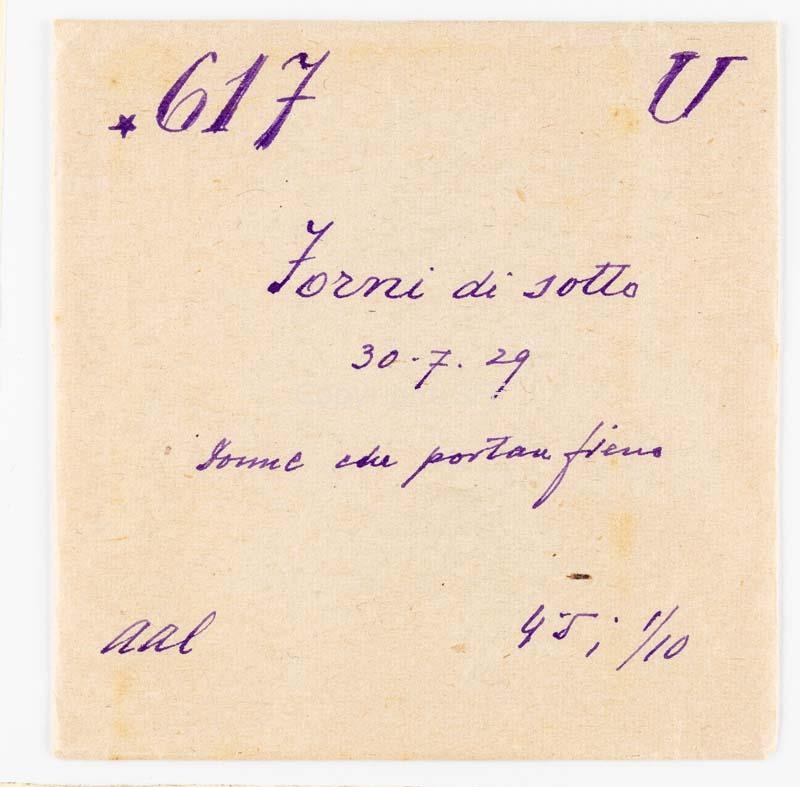 *617 U
Forni di sotto
30-7.29
Donne che portan fieno
aal 4,5; 1/10